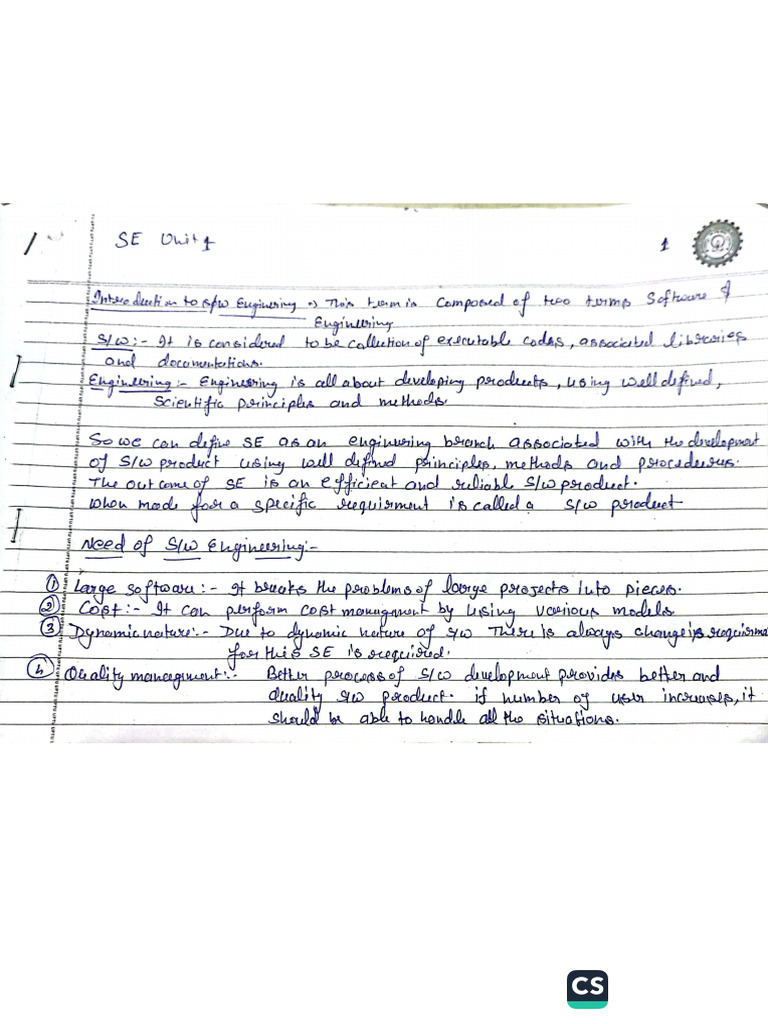 SE Unit 1
1
Introduction to S/W Enginering => This term is Composed of two terms Software &
Enginuring
S/W :- It is considered to be collection of executable codes, associated libreries
and documentations.
Engineering :- Engineering is all about developing products, using well defined,
Scientific principles and methods
So we can define SE as an engineering branch associated with the development
of S/W product using well defined principles, methods and procedures.
The outcome of SE is an efficient and reliable S/W product.
When made for a specific requirment is called a S/W product
Need of S/W Engineering :-
① Large software :- It breaks the problems of large projects into pieces.
② Cost :- It can perform cost managment by using various models
③ Dynamic nature :- Due to dynamic nature of S/W There is always change is
for this SE is required.
④ Quality management :- Better process of S/W development provides better and
quality S/W product. if number of user increases, it
should be able to handle all the situations.
CS